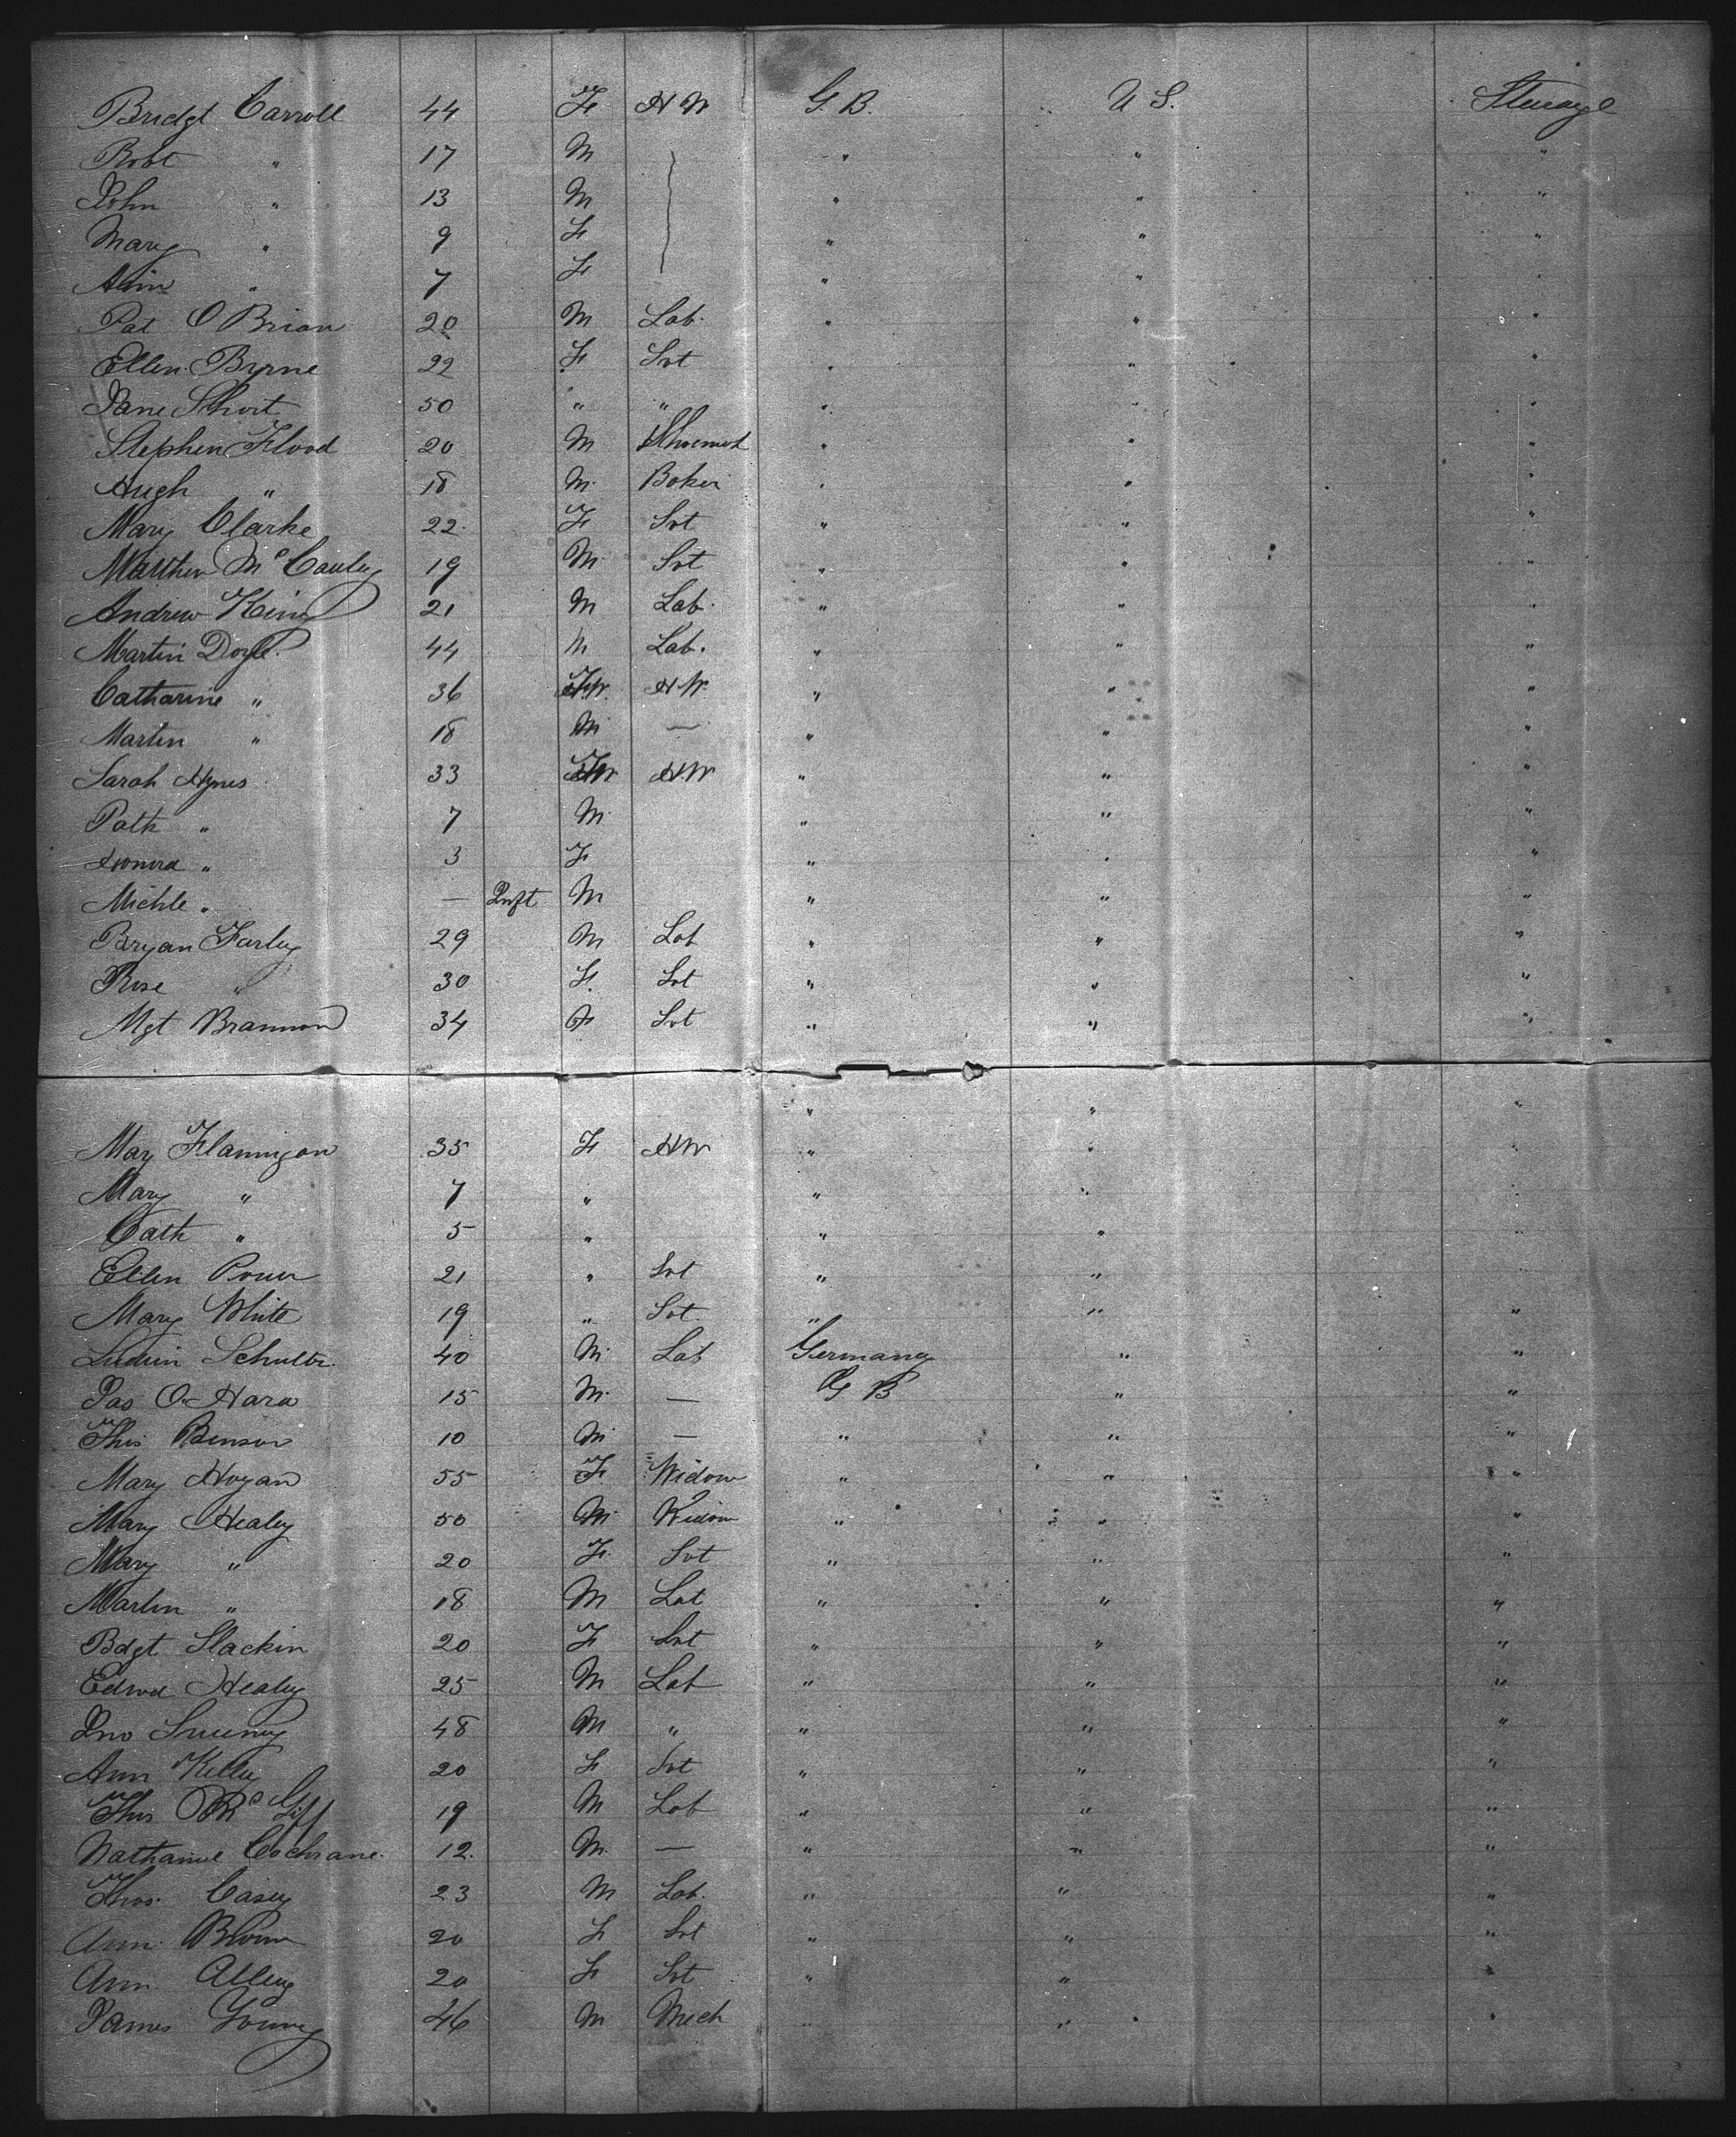 Bridgt Carroll 44 F H W G. B. U S. Steerage
Robt " 17 M " " "
John " 13 M " " "
Mary " 9 F " " "
Ann " 7 F " " "
Pat O Brian 20 M Lab. " " "
Ellen Byrne 22 F Svt " " "
Jane Short 50 " " " " "
Stephen Flood 20 M Shoemak " " "
Hugh " 18 M. Baker " " "
Mary Clarke 22. F Svt " " "
Matthew Mc Cauley 19 M. Svt " " "
Andrew King 21 M Lab. " " "
Martin Doyle. 44 M Lab. " " "
Catharine " 36 F H.W. " " "
Martin " 18 M — " " "
Sarah Hynes 33 F H.W " " "
Patk " 7 M " " "
Honora " 3 F " " "
Michle " — Inft M " " "
Bryan Farley 29 M Lab " " "
Rose " 30 F. Svt " " "
Mgt Brannon 34 F Svt " " "
" " "
Mary Flannigan 35 F HW " " "
Mary " 7 " " " "
Cath " 5 " " " "
Ellen Power 21 " Svt " " "
Mary White 19 " Svt. " " "
Ludwin Schultz. 40 M. Lab Germany " "
Jas O Hara 15 M. — G B " "
Thos Benson 10 M — " " "
Mary Hogan 55 F Widow " " "
Mary Healey 50 M. Widow " " "
Mary " 20 F. Svt " " "
Martin " 18 M Lab " " "
Bdgt Slackin 20 F Svt " " "
Edwd Healey 25 M Lab " " "
Jno Sweeney 48 M " " " "
Ann Kelly 20 F Svt " " "
Thos Mc Giff 19 M Lab " " "
Nathaniel Cochrane. 12. M. — " " "
Thos. Casey 23 M Lab. " " "
Ann Brown 20 F Svt " " "
Ann Alley 20 F Svt " " "
James Young 46 M Mech " " "